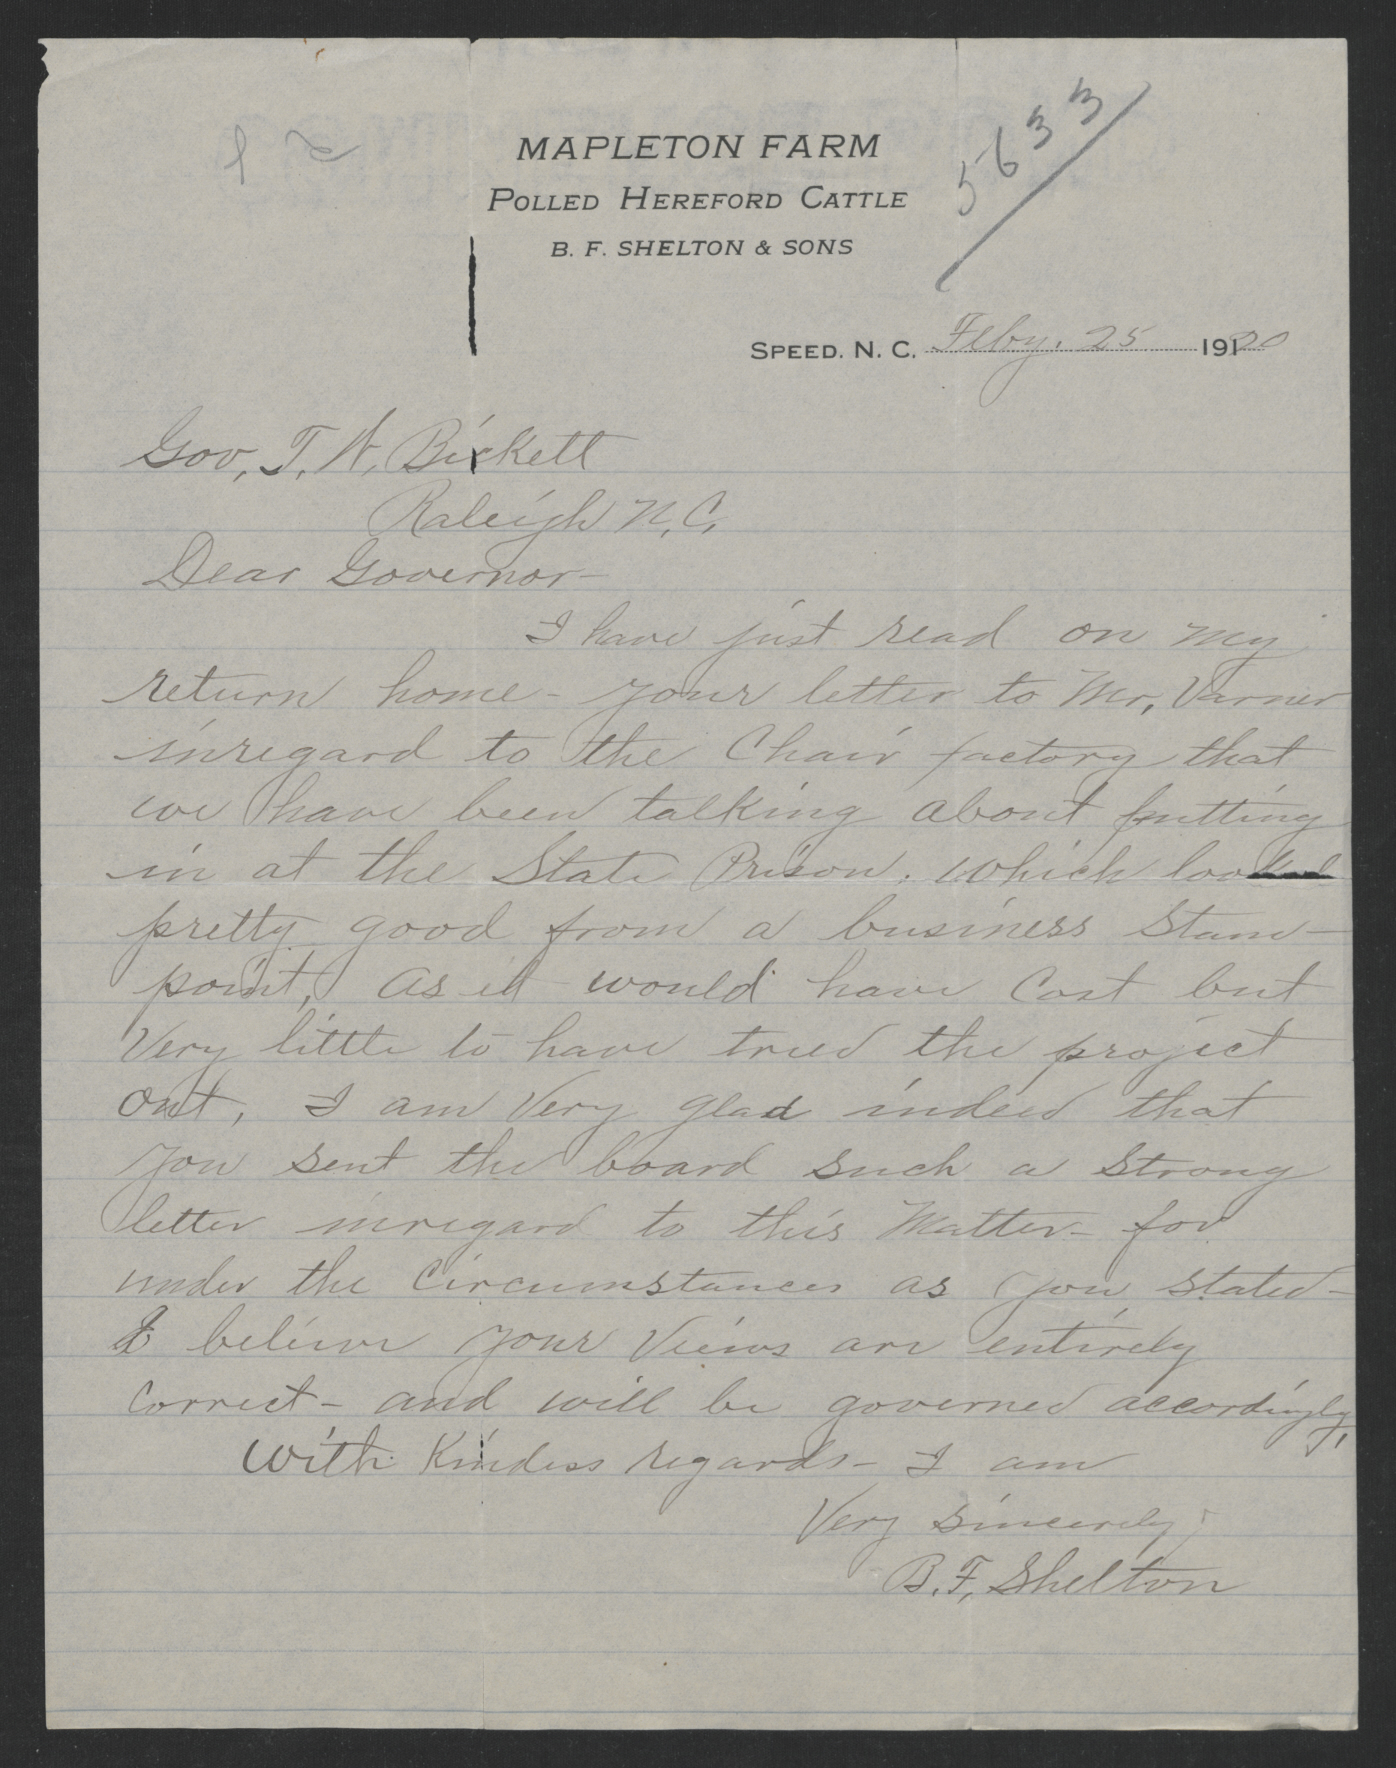 5633
MAPLETON FARM
POLLED HEREFORD CATTLE
B. F. SHELTON & SONS
SPEED. N. C. Feby. 25 1920
Gov, T. W. Bickett
Raleigh N. C.
Dear Governor-
I have just read on my
return home - your letter to Mr, Varner
inregard to the Chair factory that
we have been talking about putting
in at the State Prison. which looked
pretty good from a business stand-
point, as it would have cost but
very little to have tried the project
out, I am very glad indeed that
you sent the board such a strong
letter inregard to this matter - for
under the circumstances as you stated -
I believe your views are entirely
correct - and will be governed accordingly,
with kindess regards - I am
Very sincerely,
B. F. Shelton